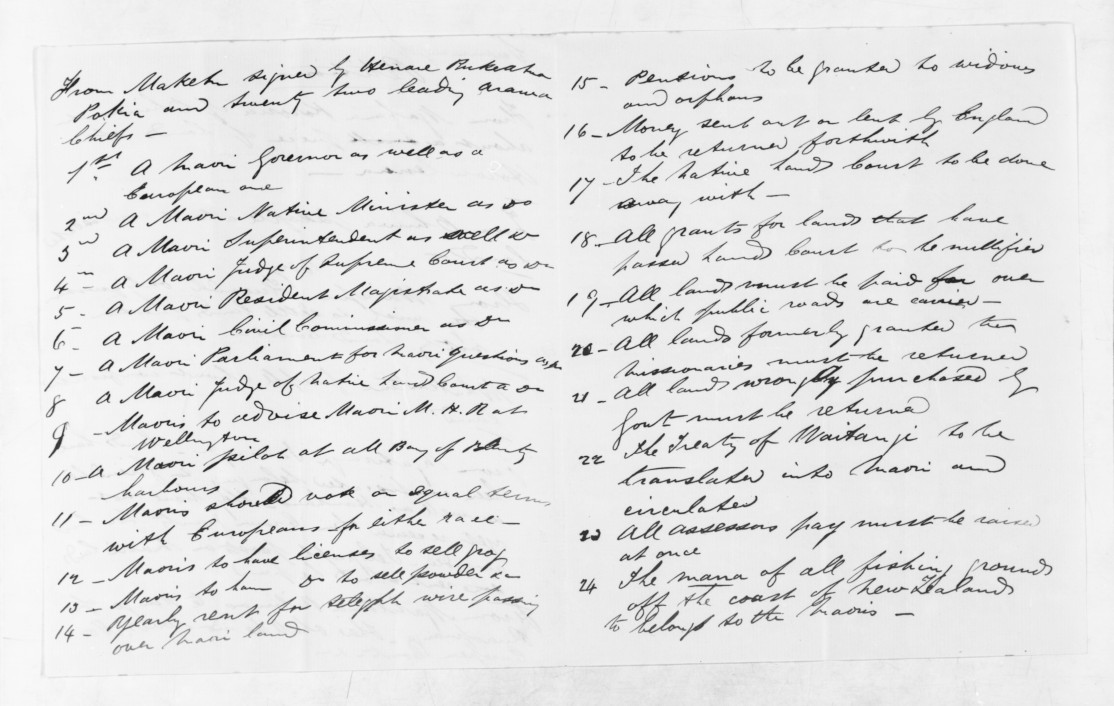 From Maketu signed by Henare Pukuatua
Pokia and twenty two leading Arawa
Chiefs —
1st. A Maori Governor as well as a
European one
2nd A Maori Native Minister as do
3rd A Maori Superintendent as well do
4th A Maori Judge of Supreme Court as do
5 - A Maori Resident Magistrate as do
6 - A Maori Civil Commissioner as do
7 - A Maori Parliament for Maori Questions
8 A Maori Judge of Native Land Court as do
9 - Maoris to advise Maori M.H.R at
Wellington
10 - A Maori pilot at all Bay of Plenty
harbours
11 - Maoris should vote on equal terms
with Europeans for either race —
12 - Maoris to have licenses to sell grog
13 - Maoris to have do to sell powder &c
14 - Yearly rent for telegph wire passing
over Maori land
15 - Pensions to be granted to widows
and orphans
16 - Money sent out or lent by England
to be returned forthwith
17 - The Native Lands Court to be done
away with —
18 - All grants for lands that have
passed Lands Court to be nullified
19 - All lands must be paid for over
which public roads are carried —
20 - All lands formerly granted to
missionaries must be returned
21 - All lands wrongly purchased by
Govt must be returned
22 The Treaty of Waitangi to be
translated into Maori and
circulated
23 All assessors pay must be raised
at once
24 The mana of all fishing grounds
off the coast of New Zealand
to belong to the Maoris —